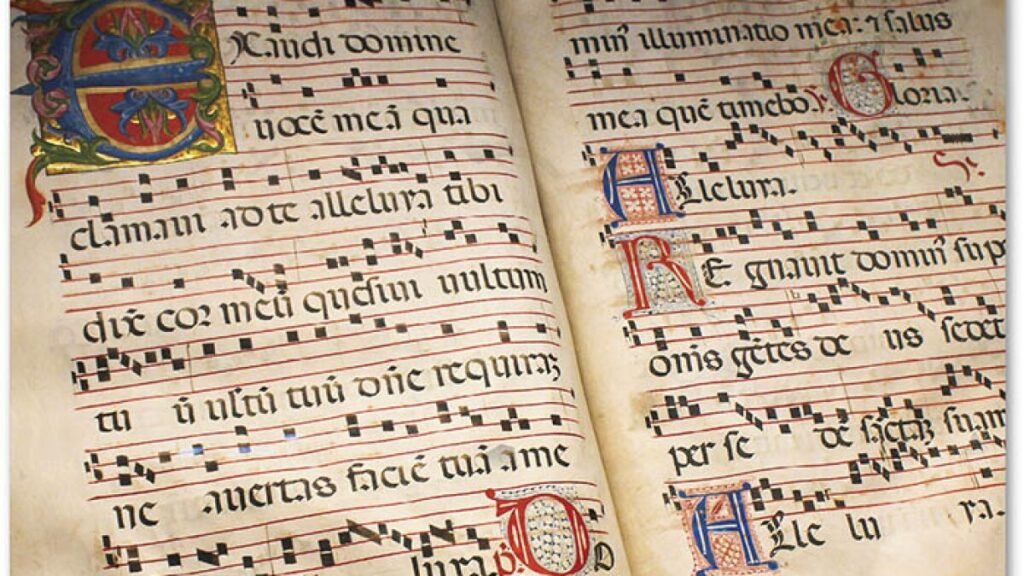 EXaudi domine
uocē meā qua
clamaui ad te alleluya tibi
dixͭ cor meū quesiui uultum
tu ū uultū tuū dn̄e requirā
ne auertas faciē tuā a me
luya. D
min᷒ illuminatio mea: ⁊ salus
mea quē timebo. Gloria.
Alleluya.
REgnauit domin᷒ sup
om̄s gētes deus sedet
per sedē sāctā suam
Alleluya.